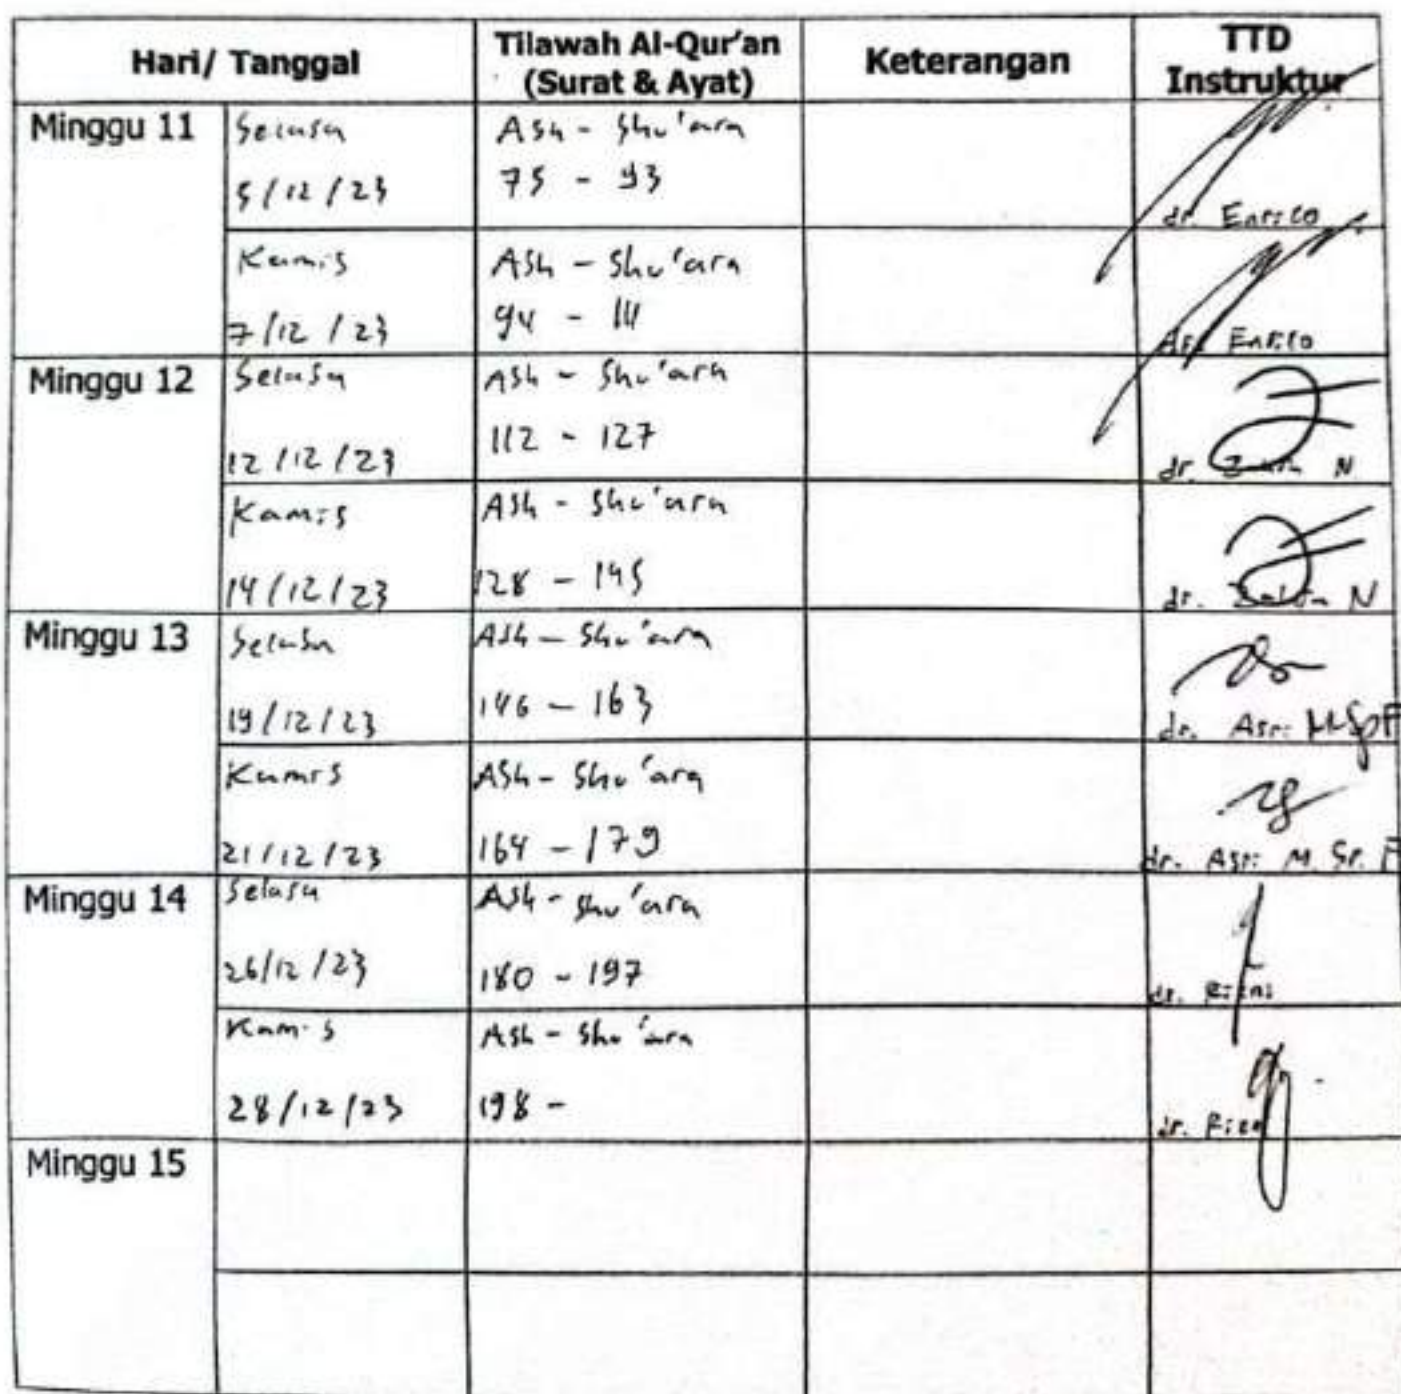 Hari/ Tanggal
Tilawah Al-Qur'an
(Surat & Ayat)
Keterangan
TTD
Instruktur
Minggu 11
Selasa
5/12/23
Ash - Shu'ara
75 - 93
dr. Enrico
Kamis
7/12/23
Ash - Shu'ara
94 - 111
Enrico
Minggu 12
Selasa
12/12/23
Ash - Shu'ara
112 - 127
dr. N
Kamis
14/12/23
Ash - Shu'ara
128 - 145
dr. N
Minggu 13
Selasa
19/12/23
Ash - Shu'ara
146 - 163
dr. Asri M SpF
Kamis
21/12/23
Ash - Shu'ara
164 - 179
dr. Asri M. Sp. F
Minggu 14
Selasa
26/12/23
Ash - Shu'ara
180 - 197
dr.
Kamis
28/12/23
Ash - Shu'ara
198 -
dr.
Minggu 15